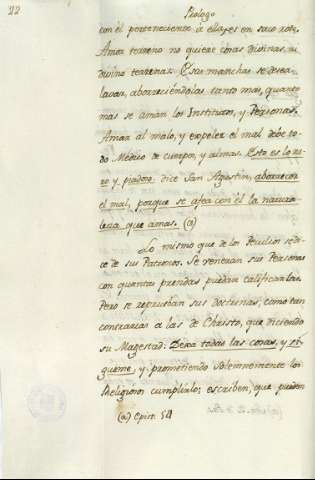 22
Prologo
con el perteneciente à ellas, es en saco roto.
Amor terreno no quiere cosas divinas, ni
divino terrenas. Esas manchas se desea
lavar, aborreciendolas tanto mas, quanto
mas se aman los Institutos, y Personas.
Amar al malo, y expeler el mal debe to-
do Medico de cuerpos, y almas. Esto es lo
y piadoso, dice San Agustin, aborrecer
el mal, porque se afea con èl la natura-
leza que amas. (a)
Lo mismo que de los Peculios se di-
ce de sus Patronos. Se veneran sus Personas
con quantas prendas puedan calificarlas.
Pero se reprueban sus doctrinas, como tan
contrarias à las de Christo, que diciendo
su Magestad: Dexa todas las cosas, y si-
gueme, y prometiendo solemnemente los
Religiosos cumplirlo; escriben, que pueden
(a) Epist. 54